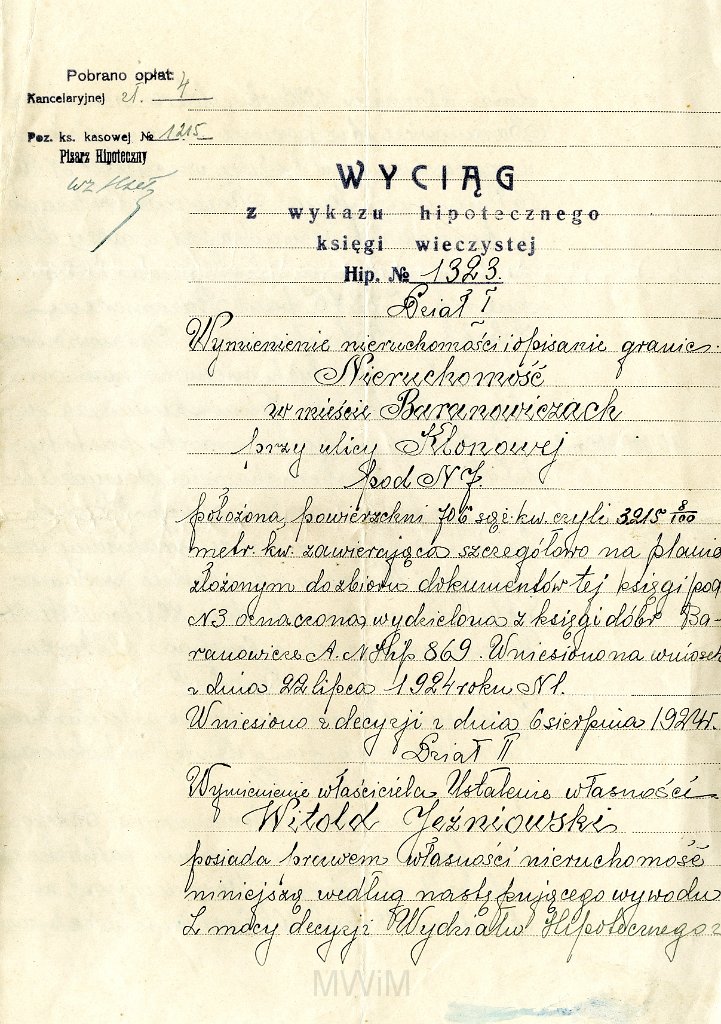 Pobrano opłat:
Kancelaryjnej zł. 4
Poz. ks. kasowej № 1215
Pisarz Hipoteczny
WYCIĄG
z wykazu hipotecznego
księgi wieczystej
Hip. № 1323.
Dział I
Wymienienie nieruchomości i opisanie granic.
Nieruchomość
w mieście Baranowiczach
przy ulicy Klonowej
pod N 7.
położona, powierzchni 706 sąż. kw. czyli 3215 8/100
metr. kw. zawierająca szczegółowo na planie
złożonym do zbioru dokumentów tej księgi pod
N3 oznaczona, wydzielona z księgi dóbr Ba-
ranowicze A. N hip 869. Wniesiono na wniosek
z dnia 22 lipca 1924 roku N1.
Wniesiono z decyzji z dnia 6 sierpnia 1924 r.
Dział II
Wymienienie właściciela Ustalenie własności
Witold Jeźniowski
posiada prawem własności nieruchomość
niniejszą według następującego wywodu
Z mocy decyzji Wydziału Hipotecznego z
MWiM